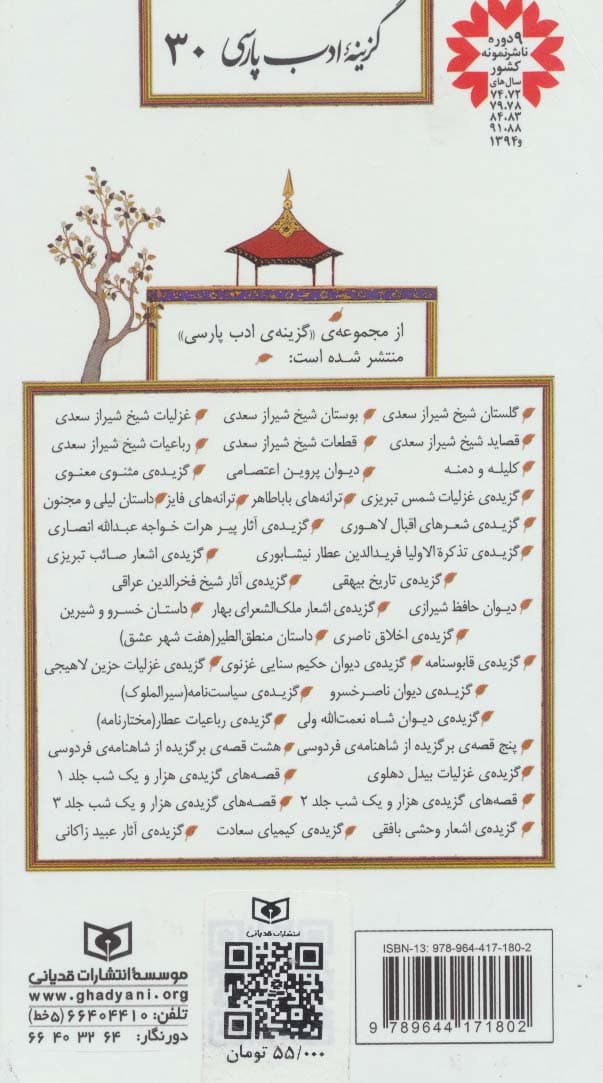 گزینهٔ ادب پارسی ۳۰
۹ دوره
ناشر نمونه
کشور
سال‌های
۷۴،۷۲
۷۹،۷۸
۸۴،۸۳
۹۱،۸۸
و ۱۳۹۴
از مجموعه‌ی «گزینه‌ی ادب پارسی»
منتشر شده است:
گلستان شیخ شیراز سعدی بوستان شیخ شیراز سعدی غزلیات شیخ شیراز سعدی
قصاید شیخ شیراز سعدی قطعات شیخ شیراز سعدی رباعیات شیخ شیراز سعدی
کلیله و دمنه دیوان پروین اعتصامی گزیده‌ی مثنوی معنوی
گزیده‌ی غزلیات شمس تبریزی ترانه‌های باباطاهر ترانه‌های فایز داستان لیلی و مجنون
گزیده‌ی شعرهای اقبال لاهوری گزیده‌ی آثار پیر هرات خواجه عبدالله انصاری
گزیده‌ی تذکرة الاولیا فریدالدین عطار نیشابوری گزیده‌ی اشعار صائب تبریزی
گزیده‌ی تاریخ بیهقی گزیده‌ی آثار شیخ فخرالدین عراقی
دیوان حافظ شیرازی گزیده‌ی اشعار ملک‌الشعرای بهار داستان خسرو و شیرین
گزیده‌ی اخلاق ناصری داستان منطق‌الطیر(هفت شهر عشق)
گزیده‌ی قابوسنامه گزیده‌ی دیوان حکیم سنایی غزنوی گزیده‌ی غزلیات حزین لاهیجی
گزیده‌ی دیوان ناصرخسرو گزیده‌ی سیاست‌نامه(سیرالملوک)
گزیده‌ی دیوان شاه نعمت‌الله ولی گزیده‌ی رباعیات عطار(مختارنامه)
پنج قصه‌ی برگزیده از شاهنامه‌ی فردوسی هشت قصه‌ی برگزیده از شاهنامه‌ی فردوسی
گزیده‌ی غزلیات بیدل دهلوی قصه‌های گزیده‌ی هزار و یک شب جلد ۱
قصه‌های گزیده‌ی هزار و یک شب جلد ۲ قصه‌های گزیده‌ی هزار و یک شب جلد ۳
گزیده‌ی اشعار وحشی بافقی گزیده‌ی کیمیای سعادت گزیده‌ی آثار عبید زاکانی
ISBN-13: 978-964-417-180-2
9 789644 171802
انتشارات قدیانی
۵۵/۰۰۰ تومان
موسسهٔ انتشارات قدیانی
www.ghadyani.org
تلفن: ۶۶۴۰۴۴۱۰ (۵خط)
دورنگار: ۶۶۴۰۳۲۶۴